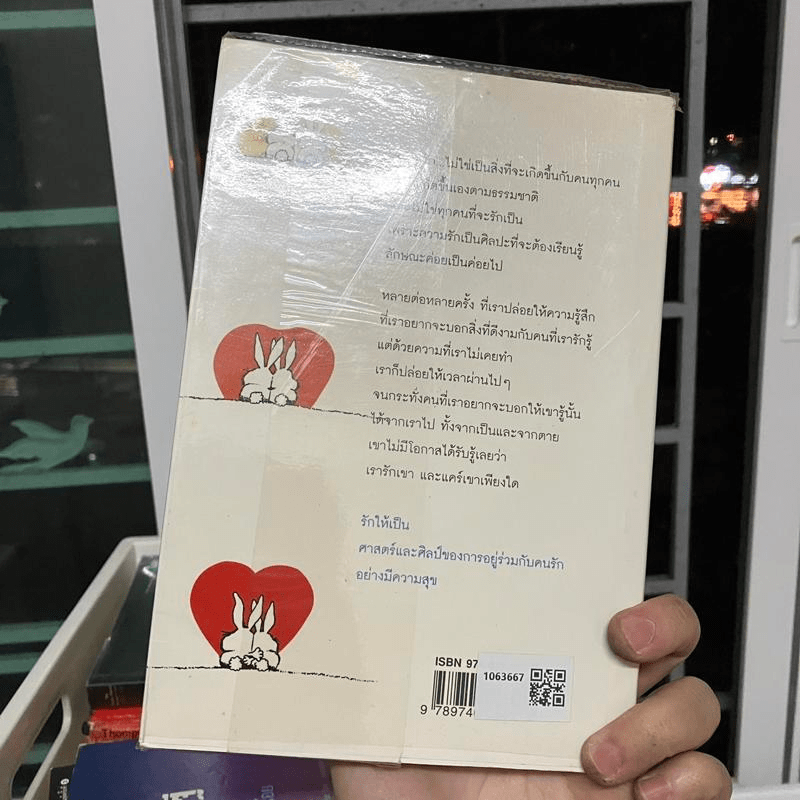 ไม่ใช่เป็นสิ่งที่จะเกิดขึ้นกับคนทุกคน
ขึ้นเองตามธรรมชาติ
ไม่ใช่ทุกคนที่จะรักเป็น
เพราะความรักเป็นศิลปะที่จะต้องเรียนรู้
ลักษณะค่อยเป็นค่อยไป
หลายต่อหลายครั้ง ที่เราปล่อยให้ความรู้สึก
ที่เราอยากจะบอกสิ่งที่ดีงามกับคนที่เรารักรู้
แต่ด้วยความที่เราไม่เคยทำ
เราก็ปล่อยให้เวลาผ่านไปๆ
จนกระทั่งคนที่เราอยากจะบอกให้เขารู้นั้น
ได้จากเราไป ทั้งจากเป็นและจากตาย
เขาไม่มีโอกาสได้รับรู้เลยว่า
เรารักเขา และแคร์เขาเพียงใด
รักให้เป็น
ศาสตร์และศิลป์ของการอยู่ร่วมกับคนรัก
อย่างมีความสุข
ISBN 97
1063667
9 78974
Thomp